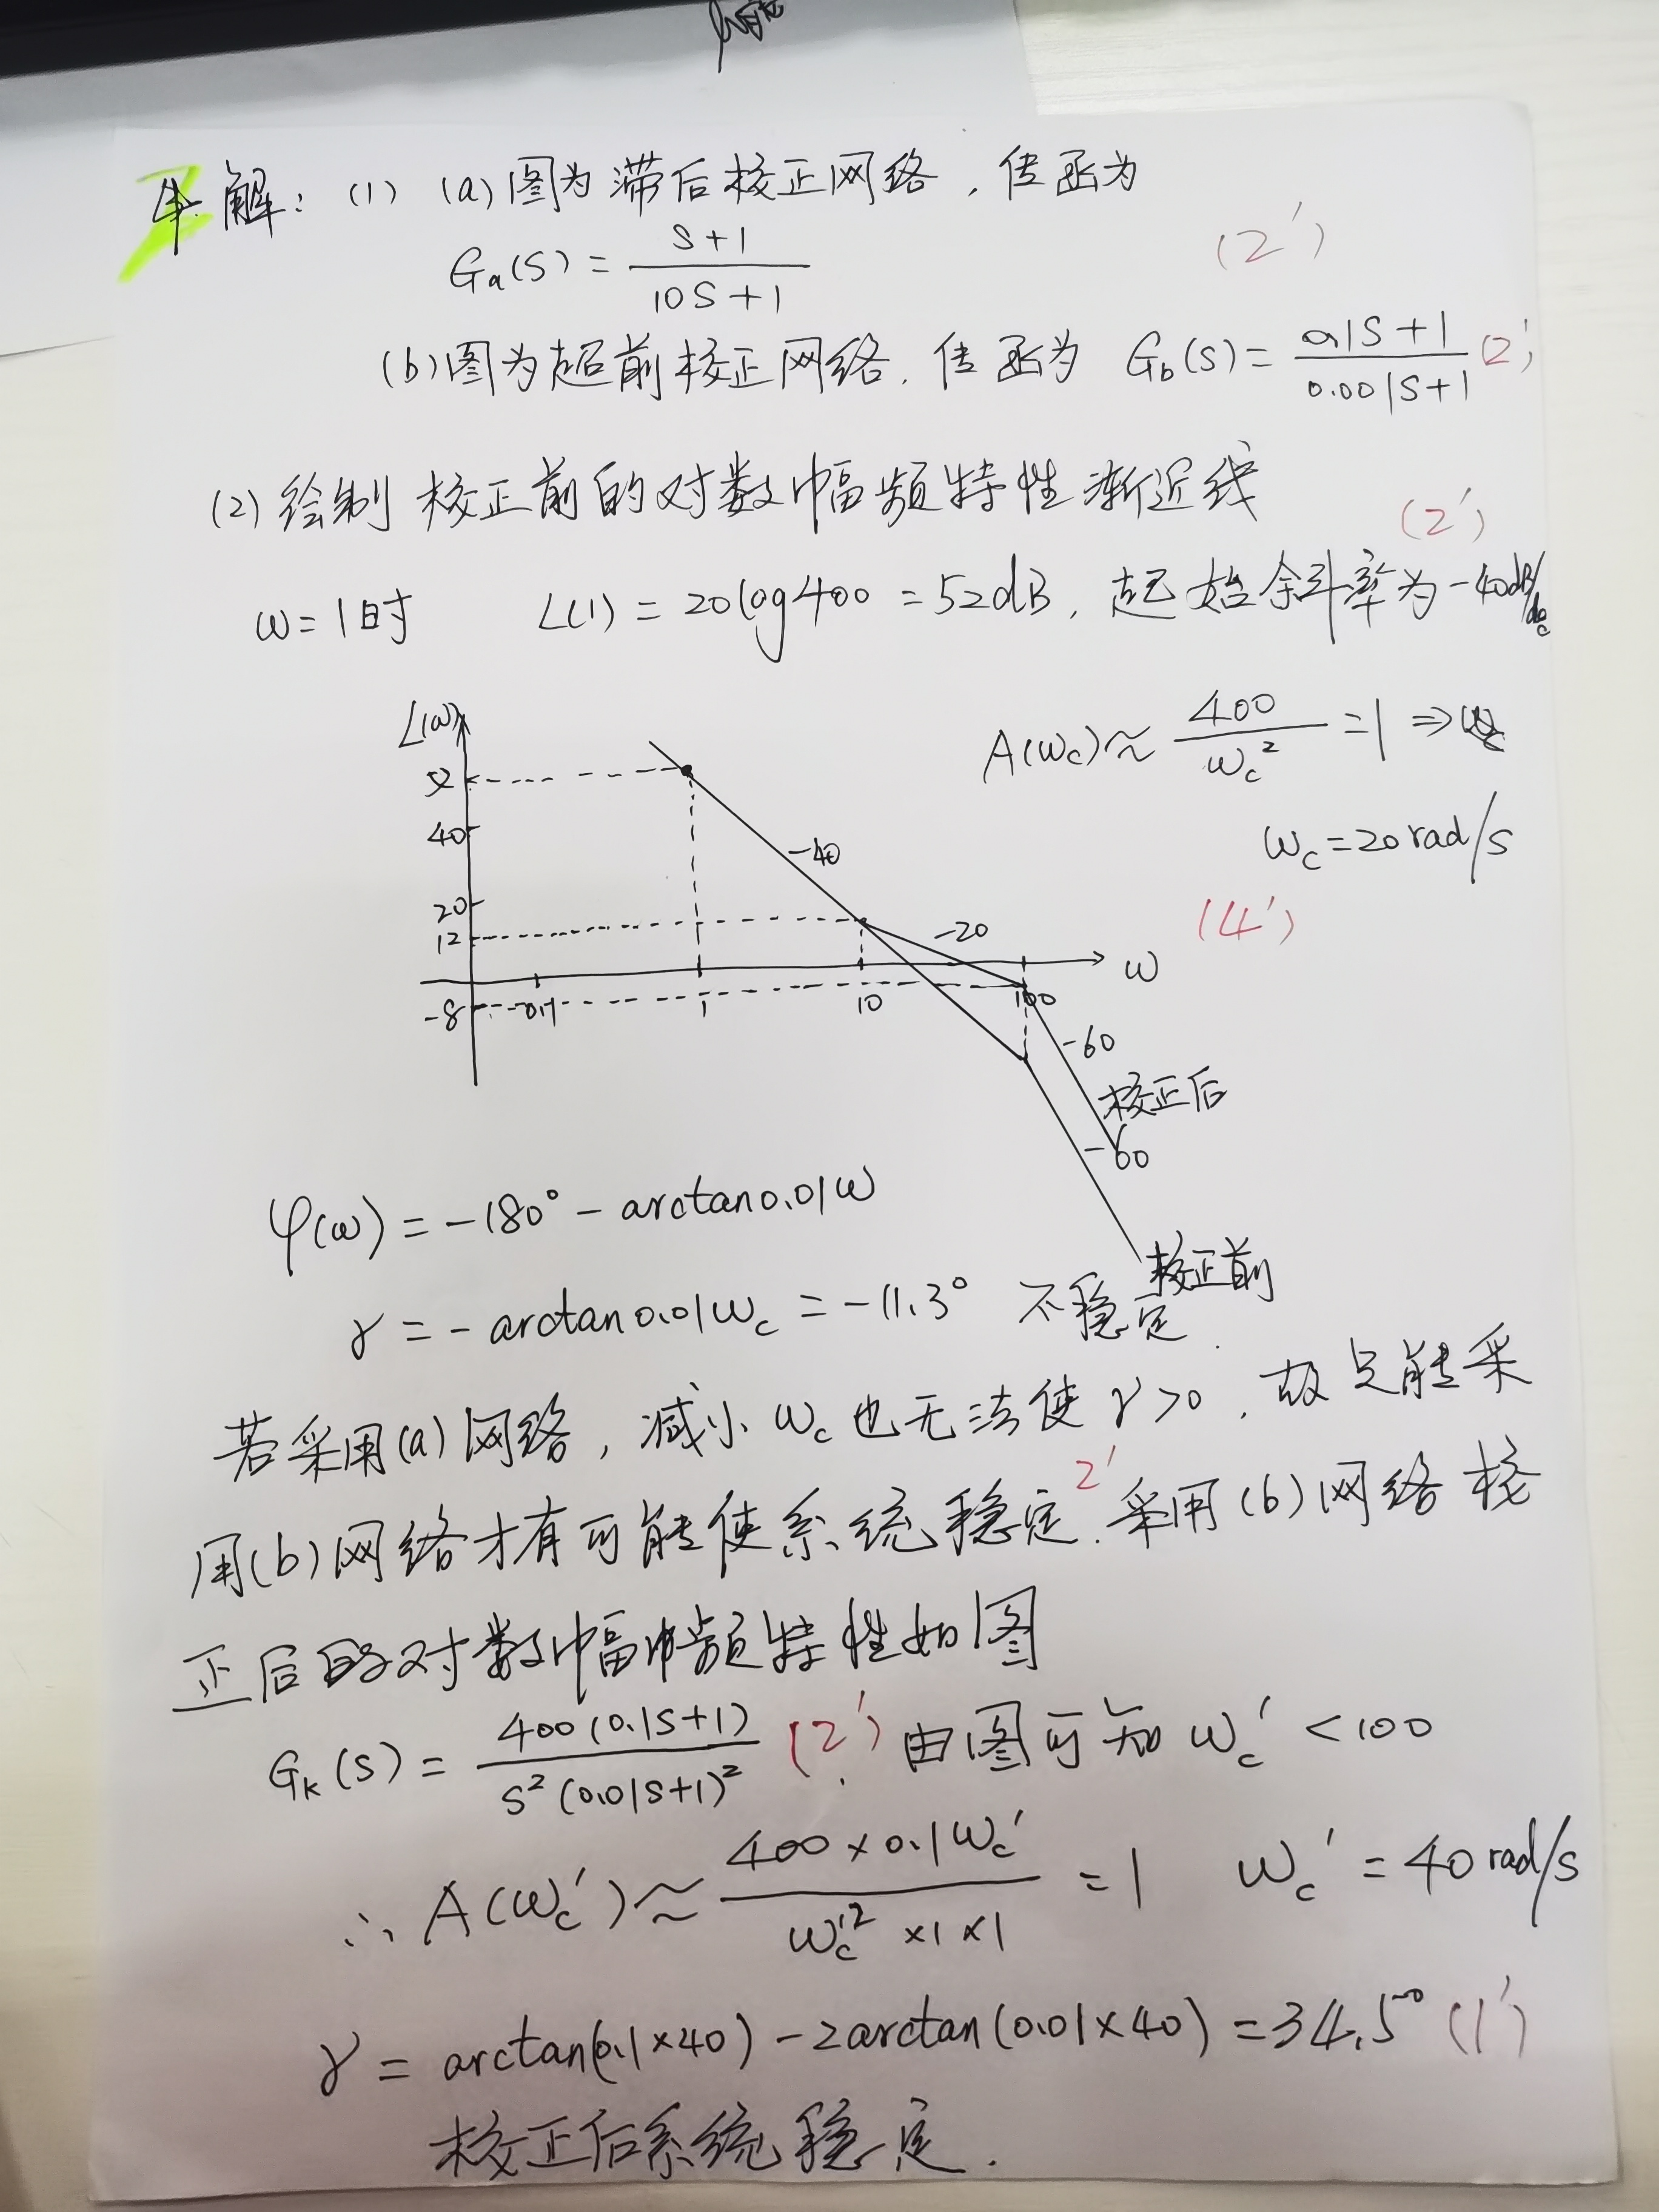 4. 解: (1) (a)图为滞后校正网络, 传函为
Ga(S) = \frac{S+1}{10S+1} (2')
(b)图为超前校正网络. 传函为 Gb(S) = \frac{0.1S+1}{0.001S+1} (2')
(2) 绘制校正前的对数幅频特性渐近线 (2')
ω=1时 L(1) = 20log400 = 52dB, 起始斜率为-40dB/dec
A(ωc) ≈ \frac{400}{ωc²} = 1 ⇒
ωc = 20rad/s
(4')
L(ω)
52
40
20
12
-8
0.1
1
10
100
ω
-40
-20
-60
校正后
-60
校正前
φ(ω) = -180° - arctan0.01ω
γ = - arctan0.01ωc = -11.3° 不稳定.
若采用(a)网络, 减小ωc也无法使γ>0, 故只能采
用(b)网络才有可能使系统稳定. 2' 采用(b)网络校
正后的对数幅频特性如图
Gk(S) = \frac{400(0.1S+1)}{S²(0.01S+1)²} (2') . 由图可知 ωc' < 100
∴ A(ωc') ≈ \frac{400×0.1ωc'}{ωc'²×1×1} = 1 ωc' = 40rad/s
γ = arctan(0.1×40) - 2arctan(0.01×40) = 34.5° (1')
校正后系统稳定.